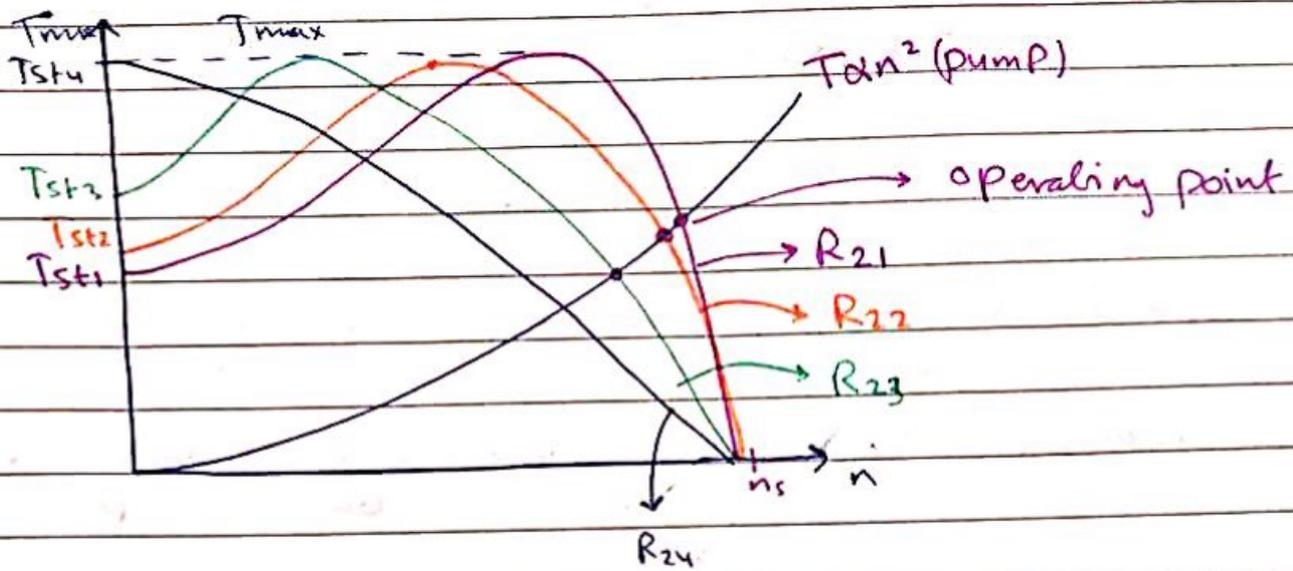 Tmax
Tst4
Tmax
Tαn² (pump)
Tst3
Tst2
Tst1
operating point
R21
R22
R23
ns
n
R24